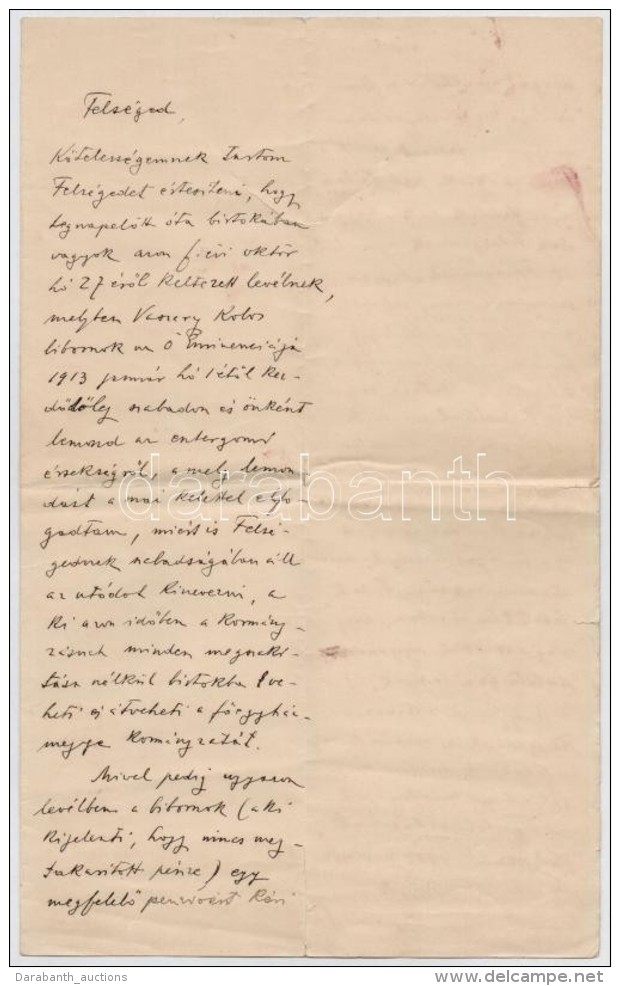 Felséged,
Kötelességemnek tartom
Felségedet értesiteni, hogy
tegnapelőtt óta birtokában
vagyok azon f. évi október
hó 27 éről keltezett levélnek,
melyben Vaszary Kolos
bibornok úr Ő Eminenciája
1913 január hó 1étől kez-
dődőleg szabadon és önként
lemond az esztergomi
érsekségről, a mely lemon
dást a mai kelettel elfo-
gadtam, miért is Felsé-
gednek szabadságában áll
az utódot kinevezni, a
ki azon időben a kormány-
zásnak minden megszaki-
tása nélkül birtokba ve-
heti s átveheti a főegyház-
megye kormányzatát.
Mivel pedig ugyanazon
levélben a bibornok (a ki
kijelenti, hogy nincs meg-
takaritott pénze) egy
megfelelő penzióért kéri
darabanth
Darabanth_auctions
www.delcampe.net